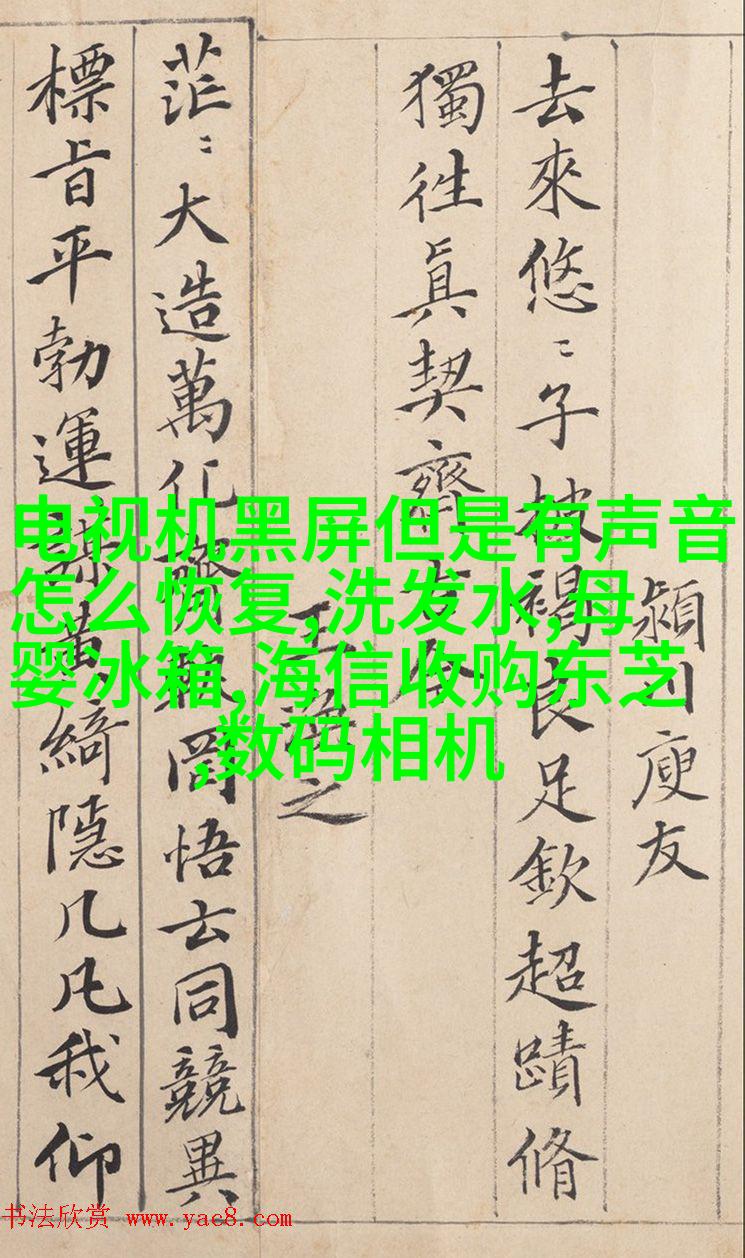 潁川庾友
去來悠〻子披褐良足欽超蹟脩
獨徃眞契齊古今
王渙之
茫〻大造萬化齊軌罔悟玄同競異
標旨平勃運謀黃綺隱几凡我仰
电视机黑屏但是有声音
怎么恢复,洗发水,母
婴冰箱,海信收购东芝
,数码相机
书法欣赏 www.yac8.com